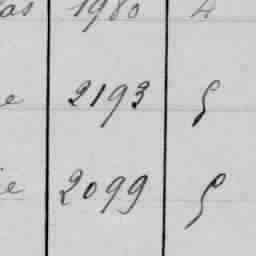 as 1980 4
e 2193 5
ie 2099 5